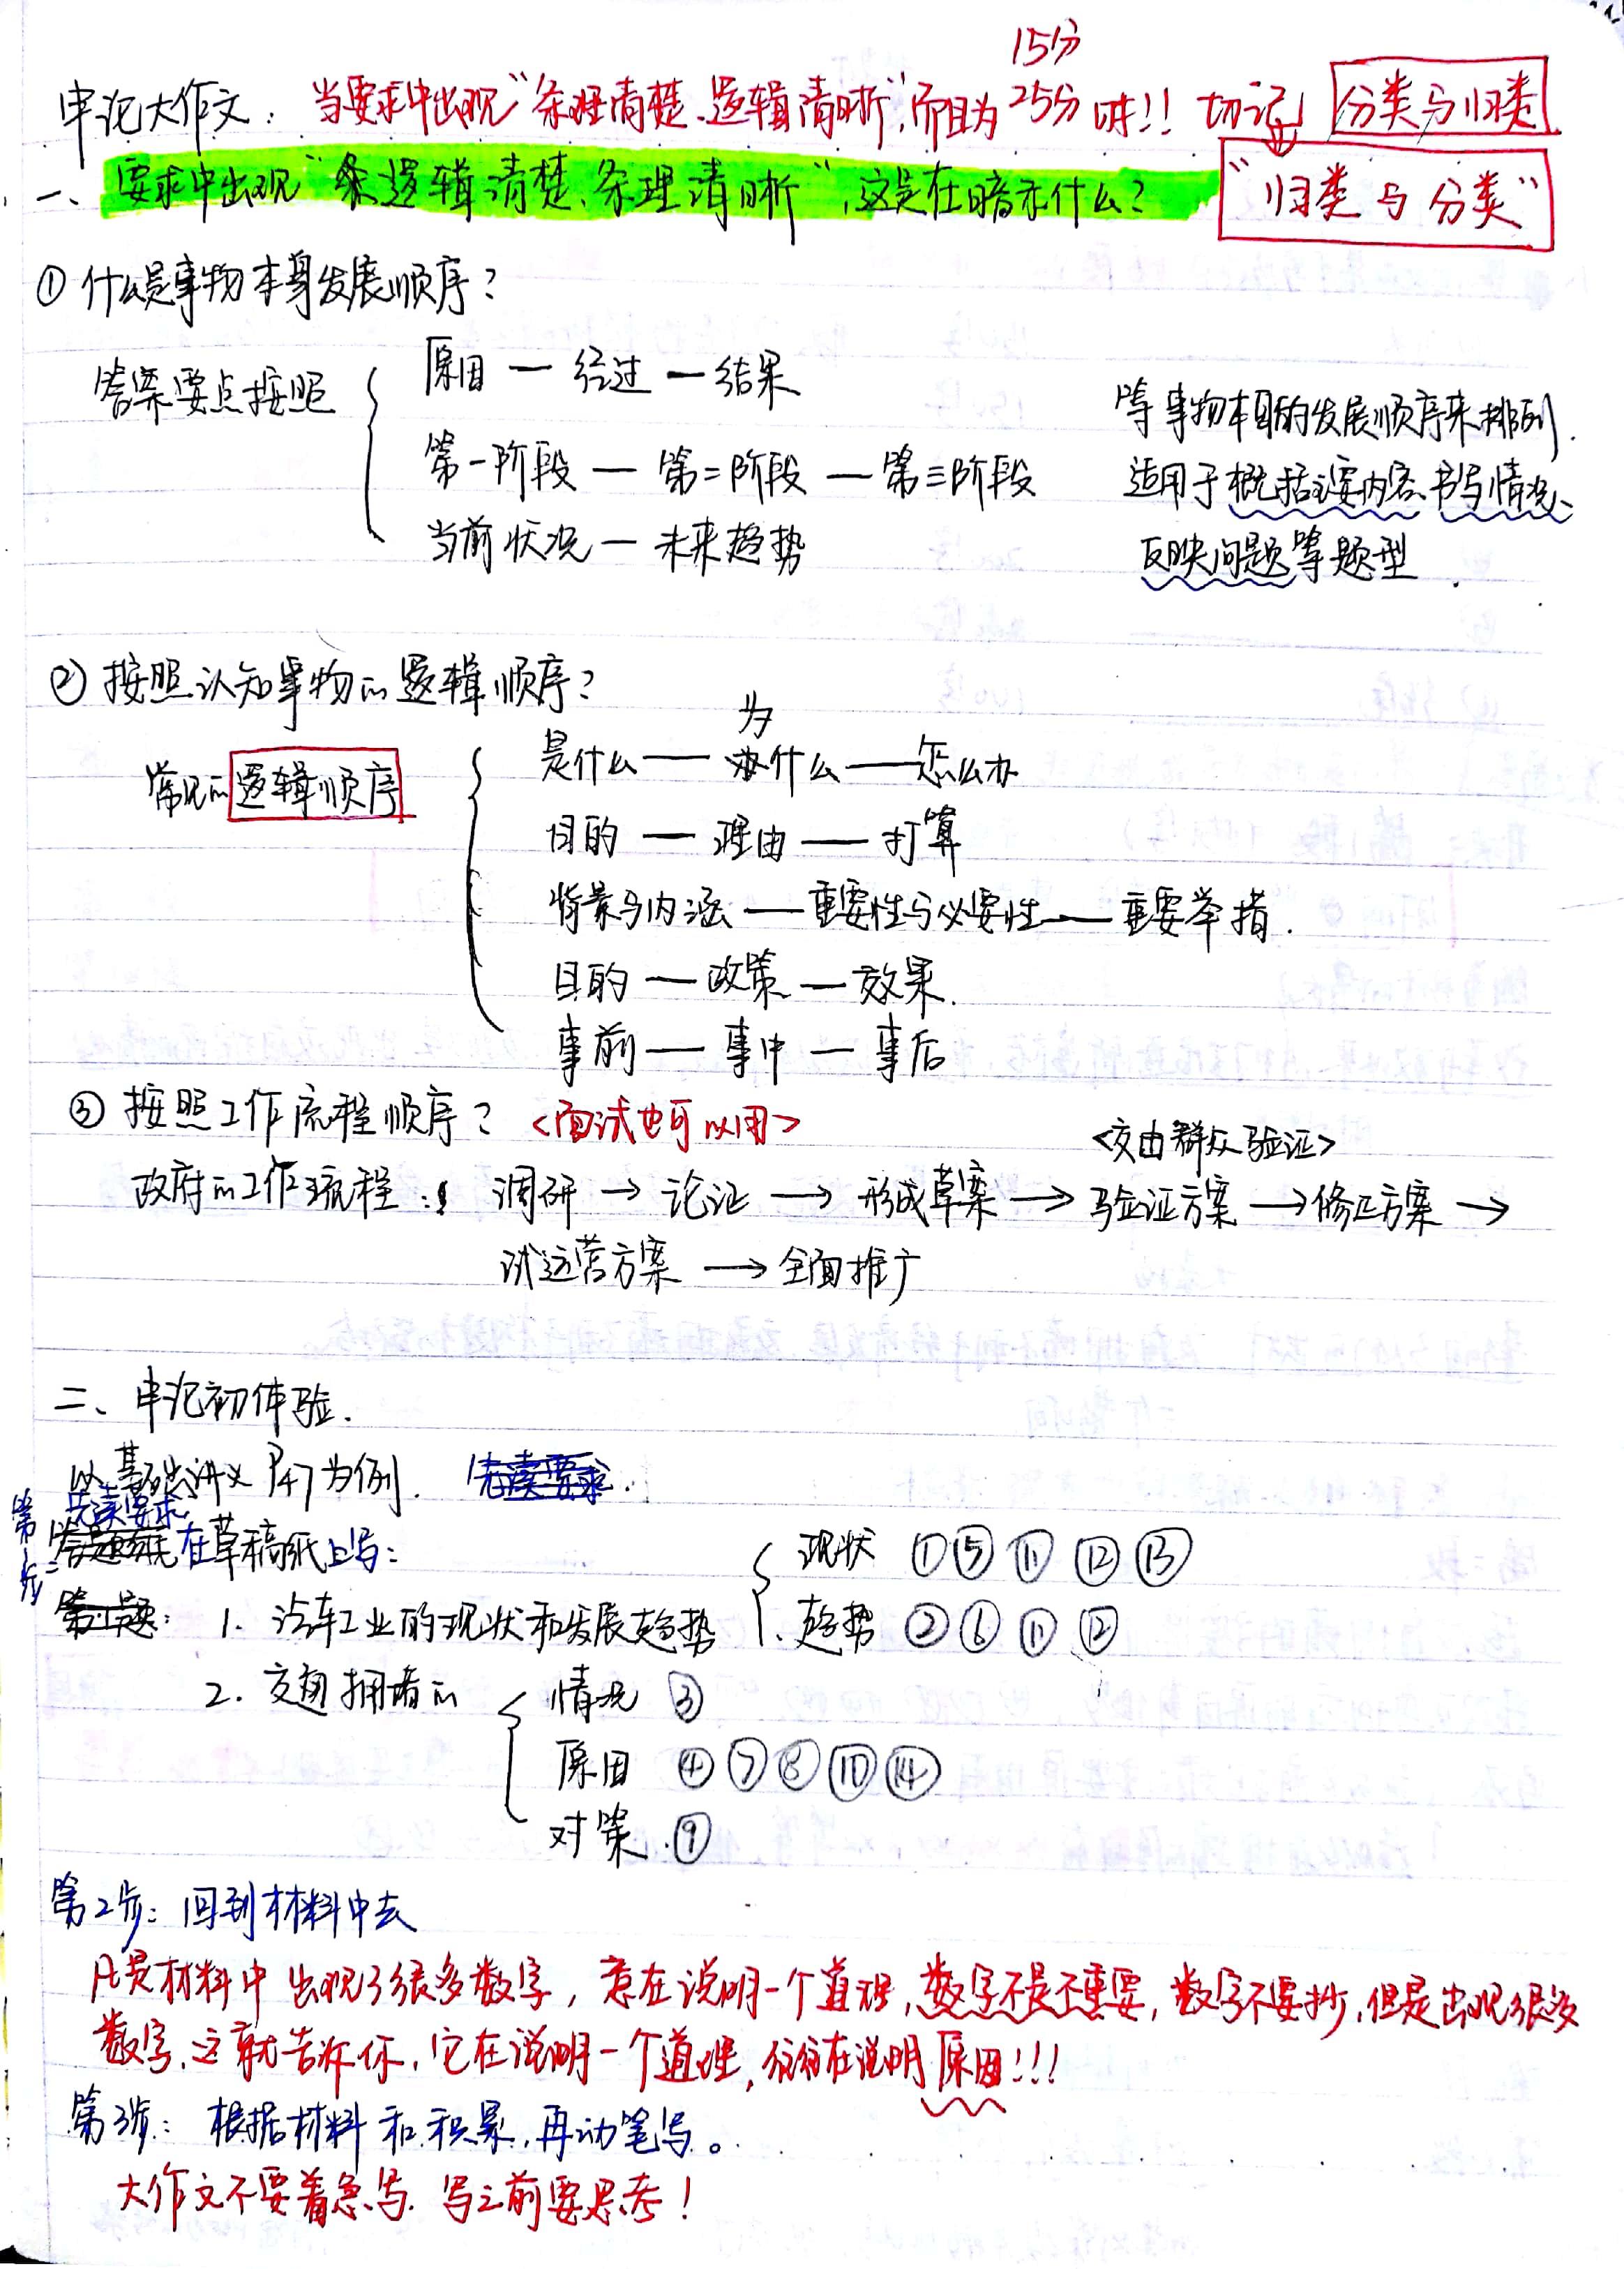 15分
申论大作文：当要求中出现“条理清楚、逻辑清晰”，而且为25分时!! 切记 分类与归类
一、要求中出现“逻辑清楚、条理清晰”，这是在暗示什么? “归类与分类”
① 什么是事物本身发展顺序?
答案要点按照
原因 — 经过 — 结果
第一阶段 — 第二阶段 — 第三阶段
当前状况 — 未来趋势
等事物本身的发展顺序来排列.
适用于概括主要内容、书写情况、
反映问题等题型.
② 按照认知事物的逻辑顺序?
常见的逻辑顺序
是什么 — 为什么 — 怎么办
目的 — 理由 — 打算
背景与内涵 — 重要性与必要性 — 重要举措.
目的 — 政策 — 效果.
事前 — 事中 — 事后
③ 按照工作流程顺序? <面试也可以用>
<交由群众验证>
政府的工作流程: 调研 → 论证 → 形成草案 → 验证方案 → 修正方案 →
试运营方案 → 全面推广
二、申论初体验.
以基础讲义P47为例. 先读要求.
第一步: 先读要求 在草稿纸上写:
1. 汽车工业的现状和发展趋势
现状 ① ⑤ ⑪ ⑫ ⑬
趋势 ② ⑥ ⑪ ⑫
2. 交通拥堵的
情况 ③
原因 ④ ⑦ ⑧ ⑩ ⑭
对策. ⑨
第2步: 回到材料中去
凡是材料中出现了很多数字，意在说明一个道理，数字不是不重要，数字不要抄，但是出现很多
数字，这就告诉你，它在说明一个道理，往往在说明原因!!!
第3步: 根据材料和积累，再动笔写。
大作文不要着急写. 写之前要思考!